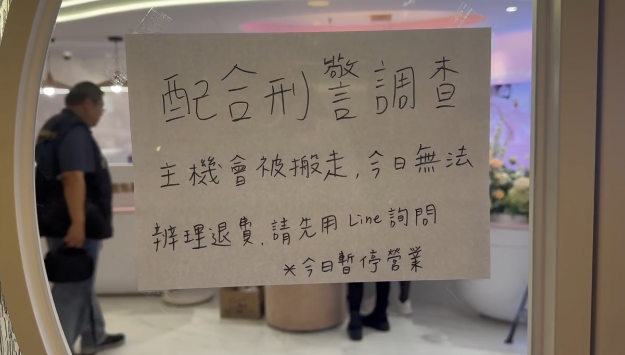 配合刑警調查
主機會被搬走,今日無法
辦理退費,請先用Line詢問
*今日暫停營業